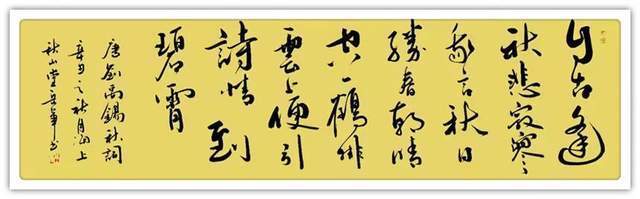 自古逢
秋悲寂寥
我言秋日
勝春朝晴
空一鶴排
雲上便引
詩情到
碧霄
唐劉禹錫秋詞
辛丑之秋月海上
秋山堂